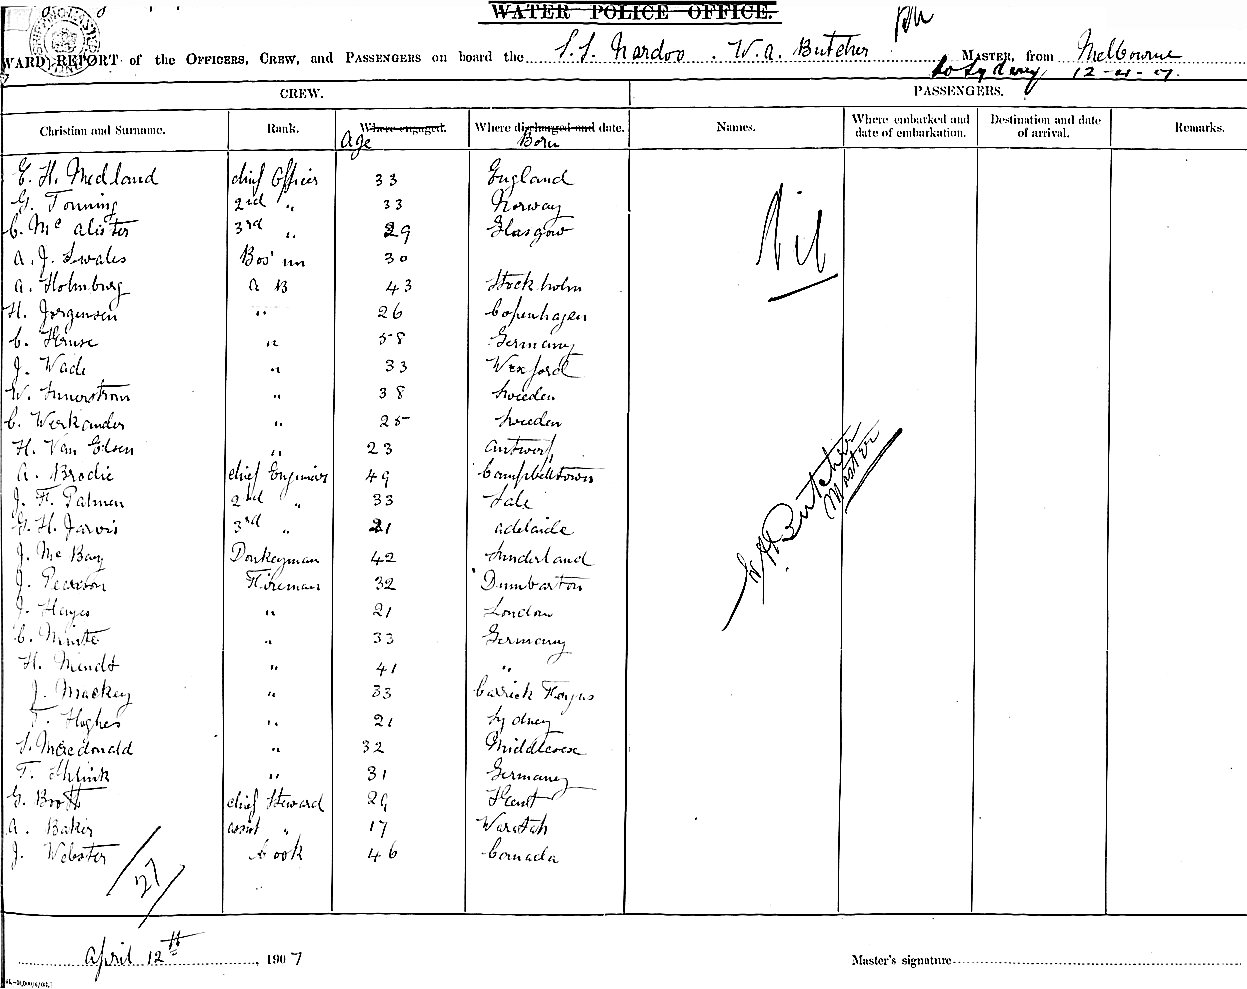 WATER POLICE OFFICE.
WARD REPORT of the OFFICERS, CREW, and PASSENGERS on board the S.S. Nardoo . W. A. Butcher MASTER, from Melbourne
to Sydney 12-4-07.
CREW. PASSENGERS.
Christian and Surname. Rank. Where engaged. Where discharged and date. Names. Where embarked and date of embarkation. Destination and date of arrival. Remarks.
Age Born
E. H. Medland chief Officer 33 England
G. Tonning 2nd " 33 Norway
C. McAlister 3rd " 29 Glasgow
A. J. Swales Bos'un 30
A. Holmburg A B 43 Stockholm
H. Jorgensen " 26 Copenhagen
C. Kruse " 58 Germany
J. Wade " 33 Wexford
W. " 38 Sweden
C. Werkander " 25 Sweden
H. Van Elsen " 23 Antwerp
A. Brodie chief Engineer 49 Campbelltown
J. F. Patmen 2nd " 33 Sale
G. H. Jarvis 3rd " 21 Adelaide
J. McBay Donkeyman 42 Sunderland
J. Pearson Fireman 32 Dumbarton
J. Hayes " 21 London
C. Minte " 33 Germany
H. Mindt " 41 "
J. Mackey " 33 Carrick Fergus
T. Hughes " 21 Sydney
S. Macdonald " 32 Middlesex
F. Shlink " 31 Germany
G. Brott chief Steward 29 Kent
A. Baker assist " 17 Waratah
J. Webster Cook 46 Canada
27
Nil
W A Butcher
Master
April 12th , 1907 Master's signature